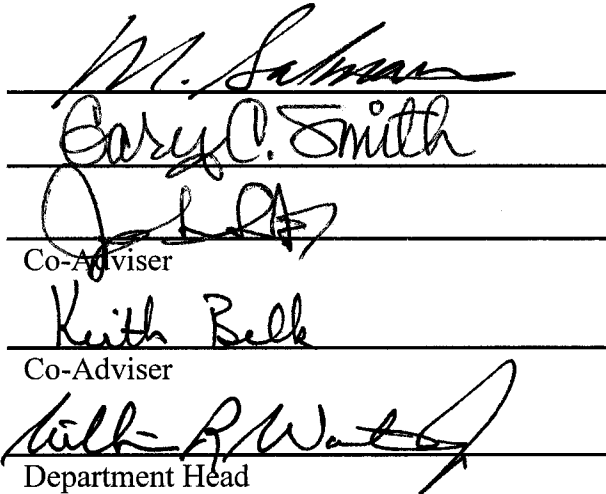 M. Salman
Gary C. Smith
Co-Adviser
Keith Belk
Co-Adviser
Department Head